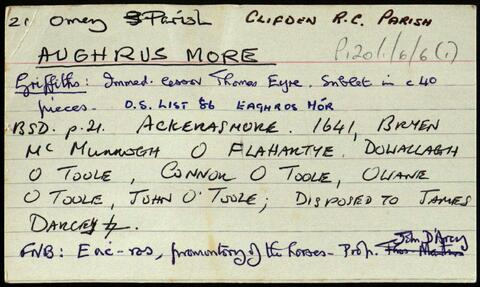 21 Omey Parish CLIFDEN R.C. PARISH
P120/1/6/6(1)
AUGHRUS MORE
Griffiths: Immed. lessor Thomas Eyre. Sublet in c 40
pieces. O.S. LIST 86 EAGHROS MÓR
BSD. p. 21. ACKERASMORE. 1641, BRYEN
MC MURROGH O FLAHARTYE. DOWALLAGH
O TOOLE, CONNOR O TOOLE, OWANE
O TOOLE, JOHN O'TOOLE; DISPOSED TO JAMES
DARCEY
John D'Arcy
FNB: Eac-ros, promontory of the horses - Prop. Thos Martin